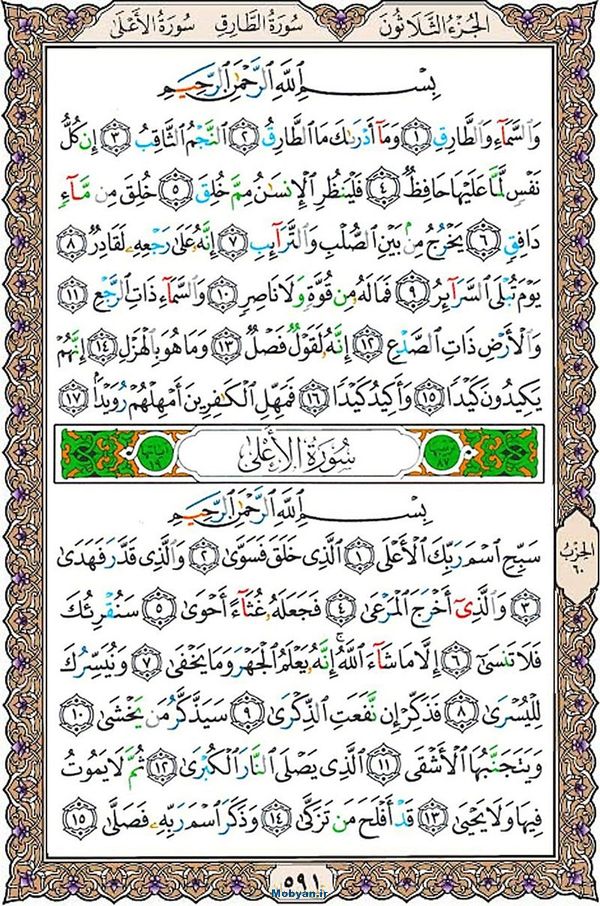 الجُزْءُ الثَّلَاثُونَ سُورَةُ الطَّارِقِ سُورَةُ الأَعْلَىٰ
بِسْمِ ٱللَّهِ ٱلرَّحْمَٰنِ ٱلرَّحِيمِ
وَٱلسَّمَآءِ وَٱلطَّارِقِ ١ وَمَآ أَدْرَىٰكَ مَا ٱلطَّارِقُ ٢ ٱلنَّجْمُ ٱلثَّاقِبُ ٣ إِن كُلُّ
نَفْسٍ لَّمَّا عَلَيْهَا حَافِظٌ ٤ فَلْيَنظُرِ ٱلْإِنسَٰنُ مِمَّ خُلِقَ ٥ خُلِقَ مِن مَّآءٍ
دَافِقٍ ٦ يَخْرُجُ مِنۢ بَيْنِ ٱلصُّلْبِ وَٱلتَّرَآئِبِ ٧ إِنَّهُۥ عَلَىٰ رَجْعِهِۦ لَقَادِرٌ ٨
يَوْمَ تُبْلَى ٱلسَّرَآئِرُ ٩ فَمَا لَهُۥ مِن قُوَّةٍ وَلَا نَاصِرٍ ١٠ وَٱلسَّمَآءِ ذَاتِ ٱلرَّجْعِ ١١
وَٱلْأَرْضِ ذَاتِ ٱلصَّدْعِ ١٢ إِنَّهُۥ لَقَوْلٌ فَصْلٌ ١٣ وَمَا هُوَ بِٱلْهَزْلِ ١٤ إِنَّهُمْ
يَكِيدُونَ كَيْدًا ١٥ وَأَكِيدُ كَيْدًا ١٦ فَمَهِّلِ ٱلْكَٰفِرِينَ أَمْهِلْهُمْ رُوَيْدًۢا ١٧
سُورَةُ الأَعْلَىٰ
بِسْمِ ٱللَّهِ ٱلرَّحْمَٰنِ ٱلرَّحِيمِ
سَبِّحِ ٱسْمَ رَبِّكَ ٱلْأَعْلَى ١ ٱلَّذِى خَلَقَ فَسَوَّىٰ ٢ وَٱلَّذِى قَدَّرَ فَهَدَىٰ
٣ وَٱلَّذِىٓ أَخْرَجَ ٱلْمَرْعَىٰ ٤ فَجَعَلَهُۥ غُثَآءً أَحْوَىٰ ٥ سَنُقْرِئُكَ
فَلَا تَنسَىٰٓ ٦ إِلَّا مَا شَآءَ ٱللَّهُ ۚ إِنَّهُۥ يَعْلَمُ ٱلْجَهْرَ وَمَا يَخْفَىٰ ٧ وَنُيَسِّرُكَ
لِلْيُسْرَىٰ ٨ فَذَكِّرْ إِن نَّفَعَتِ ٱلذِّكْرَىٰ ٩ سَيَذَّكَّرُ مَن يَخْشَىٰ ١٠
وَيَتَجَنَّبُهَا ٱلْأَشْقَى ١١ ٱلَّذِى يَصْلَى ٱلنَّارَ ٱلْكُبْرَىٰ ١٢ ثُمَّ لَا يَمُوتُ
فِيهَا وَلَا يَحْيَىٰ ١٣ قَدْ أَفْلَحَ مَن تَزَكَّىٰ ١٤ وَذَكَرَ ٱسْمَ رَبِّهِۦ فَصَلَّىٰ ١٥
الحِزْبُ
٦٠
٥٩١
Mobyan.ir